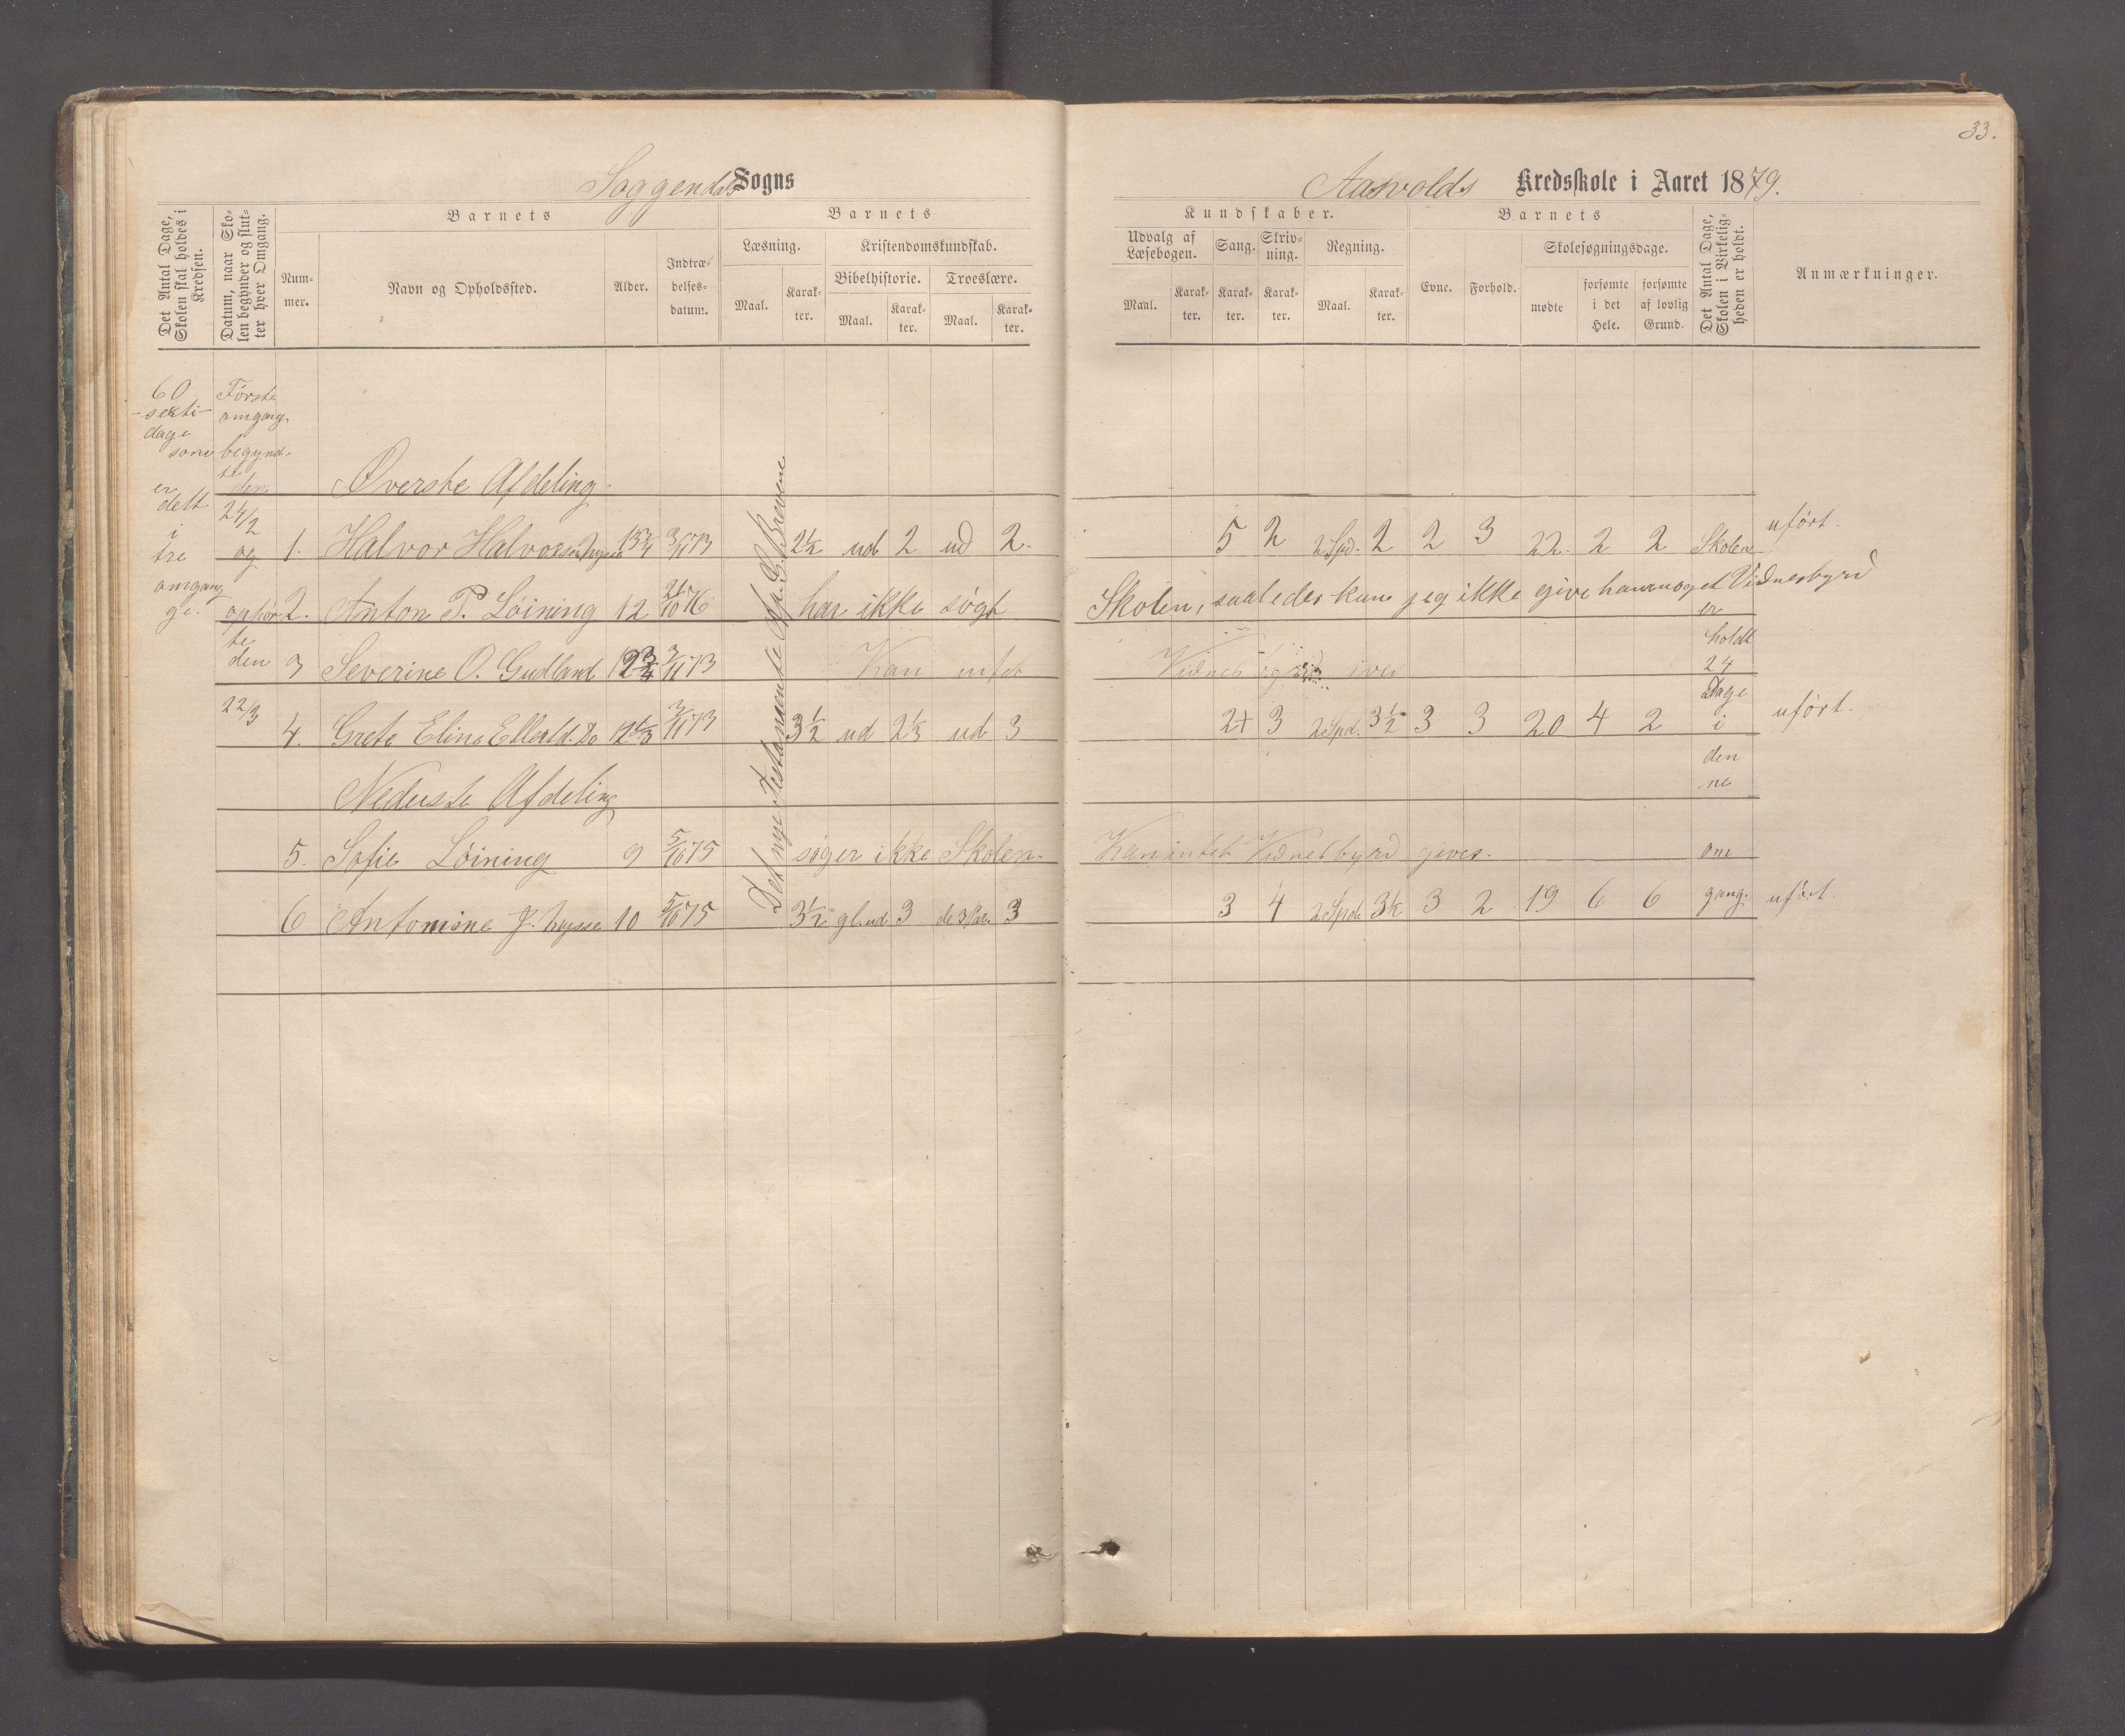 33.
Soggendals Sogns
Aasvolds Kredsskole i Aaret 1879.
Det Antal Dage, Skolen skal holdes i Kredsen.
Datum, naar Skolen begynder og slutter hver Omgang.
Barnets
Nummer.
Navn og Opholdssted.
Alder.
Indtrædelsesdatum.
Barnets
Læsning.
Maal.
Karakter.
Kristendomskundskab.
Bibelhistorie.
Maal.
Karakter.
Troeslære.
Maal.
Karakter.
Kundskaber.
Udvalg af Læsebogen.
Maal.
Karakter.
Sang.
Karakter.
Skrivning.
Karakter.
Regning.
Maal.
Karakter.
Barnets
Evne.
Forhold.
Skolesøgningsdage.
mødte
forsømte i det Hele.
forsømte af lovlig Grund.
Det Antal Dage, Skolen i Virkeligheden er holdt.
Anmærkninger.
60
-seksti-
dage
som
er
delt
i
tre
omgan
ge.
Første
omgang
begynd-
te
den
24/2
og
ophør
te
den
22/3
Det nye Testamente Ap. G. Brevene
Øverste Afdeling
1. Halvor Halvorsen 13 3/4 3/11 73 2½ ud 2 ud 2. 5 2 2 Spd. 2 2 3 22. 2 2 Skolen uført.
2. Anton P. Løining 12 21/10 76 har ikke søgt Skolen, saaledes kan jeg ikke give ham noget Vidnesbyrd
3 Severine O. Gudland 12 3/4 3/11 73 Kan intet Vidnesbyrd gives
4. Grete Eline Do 12 3/11 73 3½ ud 2½ ud 3 2+ 3 2 Spd. 3½ 3 3 20 4 2 uført.
Nederste Afdeling
5. Sofie Løining 9 5/10 75 søger ikke Skolen. Kan intet Vidnesbyrd gives.
6 Antonine J. 10 5/10 75 3½ gl. ud 3 de 3 Par. 3 3 4 2 Spd. 3½ 3 2 19 6 6 uført.
er
holdt
24
Dage
i
den
ne
om
gang.